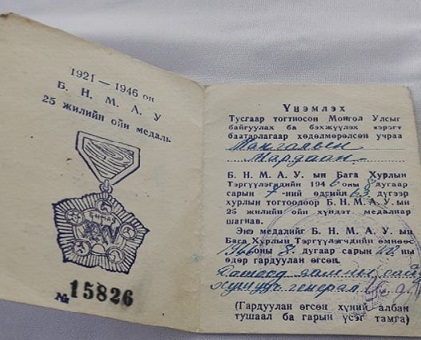 1921 — 1946 он
Б. Н. М. А. У
25 жилийн ойн медаль.
XXV
№ 15826
Үнэмлэх
Тусгаар тогтносон Монгол Улсыг
байгуулах ба бэхжүүлэх хэрэгт
баатарлагаар хөдөлмөрөлсөн учраа
Б. Н. М. А. У. ын Бага Хурлын
Тэргүүлэгчдийн 1946 оны 8 дугаар
сарын 7-ний өдрийн 63 дүгээр
хурлын тогтоолоор Б. Н. М. А. У. ын
25 жилийн ойн хүндэт медалиар
шагнав.
Энэ медалийг Б. Н. М. А. У. ын
Бага Хурлын Тэргүүлэгчдийн өмнөөс
оны 8. дугаар сарын ны
өдөр гардуулан өгсөн.
генерал
(Гардуулан өгсөн хүний албан
тушаал ба гарын үсэг тамга)